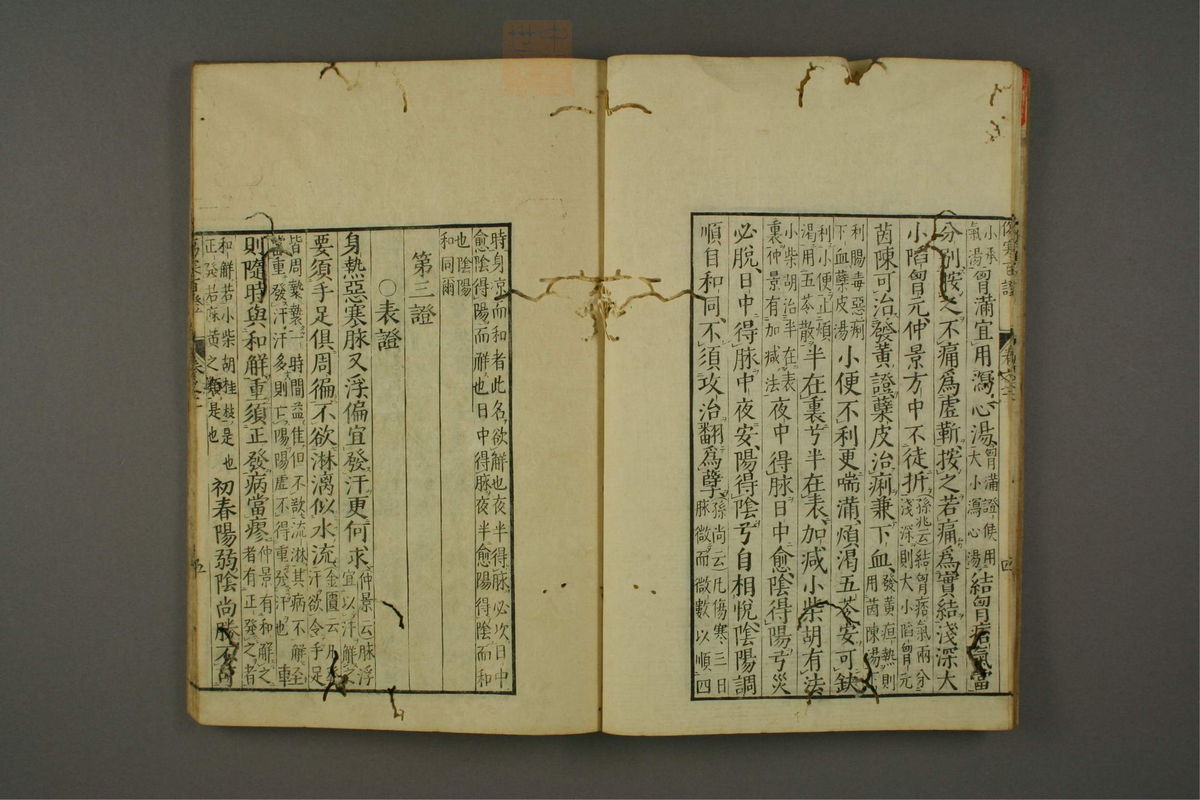 小承
氣湯胷滿宜用瀉心湯胷滿證候用
大小瀉心湯結胷痞氣當
分別按之不痛爲虛靳按之若痛爲實結淺深大
小陷胷元仲景方中不徒折孫兆云結胷痞氣兩分
淺深則大小陷胷元
茵陳可治發黃證蘗皮治痢兼下血發黃疸熱則
用茵陳湯
利腸毒惡痢
下血蘗皮湯小便不利更喘滿煩渴五苓安可缺
利小便止煩
渴用五苓散半在裏兮半在表加減小柴胡有法
小柴胡治半在表
裏仲景有加減法夜中得脉日中愈陰得陽兮災
必脫日中得脉中夜安陽得陰兮自相悅陰陽調
順自和同不須攻治翻爲孽孫尚云凡傷寒三日
脉微而微數以順四
時身涼而和者此名欲解也夜半得脉必次日中
愈陰得陽而解也日中得脉夜半愈陽得陰而和
也陰陽
和同爾
第三證
○表證
身熱惡寒脉又浮偏宜發汗更何求仲景云脉浮
宜以汗解之
要須手足俱周徧不欲淋漓似水流金匱云凡發
汗欲令手足
皆周漐漐一時間益佳但不欲流淋其病不解至
當重發汗汗多則亡陽陽虛不得重發汗也 車
則隨時與和解重須正發病當瘳仲景有和解之
者有正發之者
和解若小柴胡桂枝是也
正發若麻黃之類是也初春陽弱陰尚勝不可
傷寒百證
卷之一
四